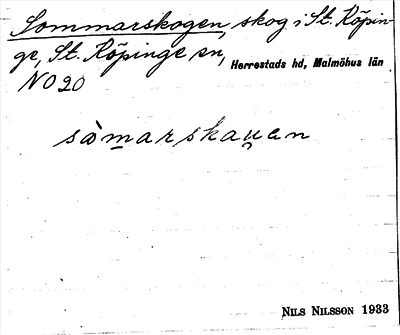 Sommarskogen, skog i St. Köpin-
ge, St. Köpinge sn, Herrestads hd, Malmöhus län
NO 20
sòmarskau̯en
NILS NILSSON 1933